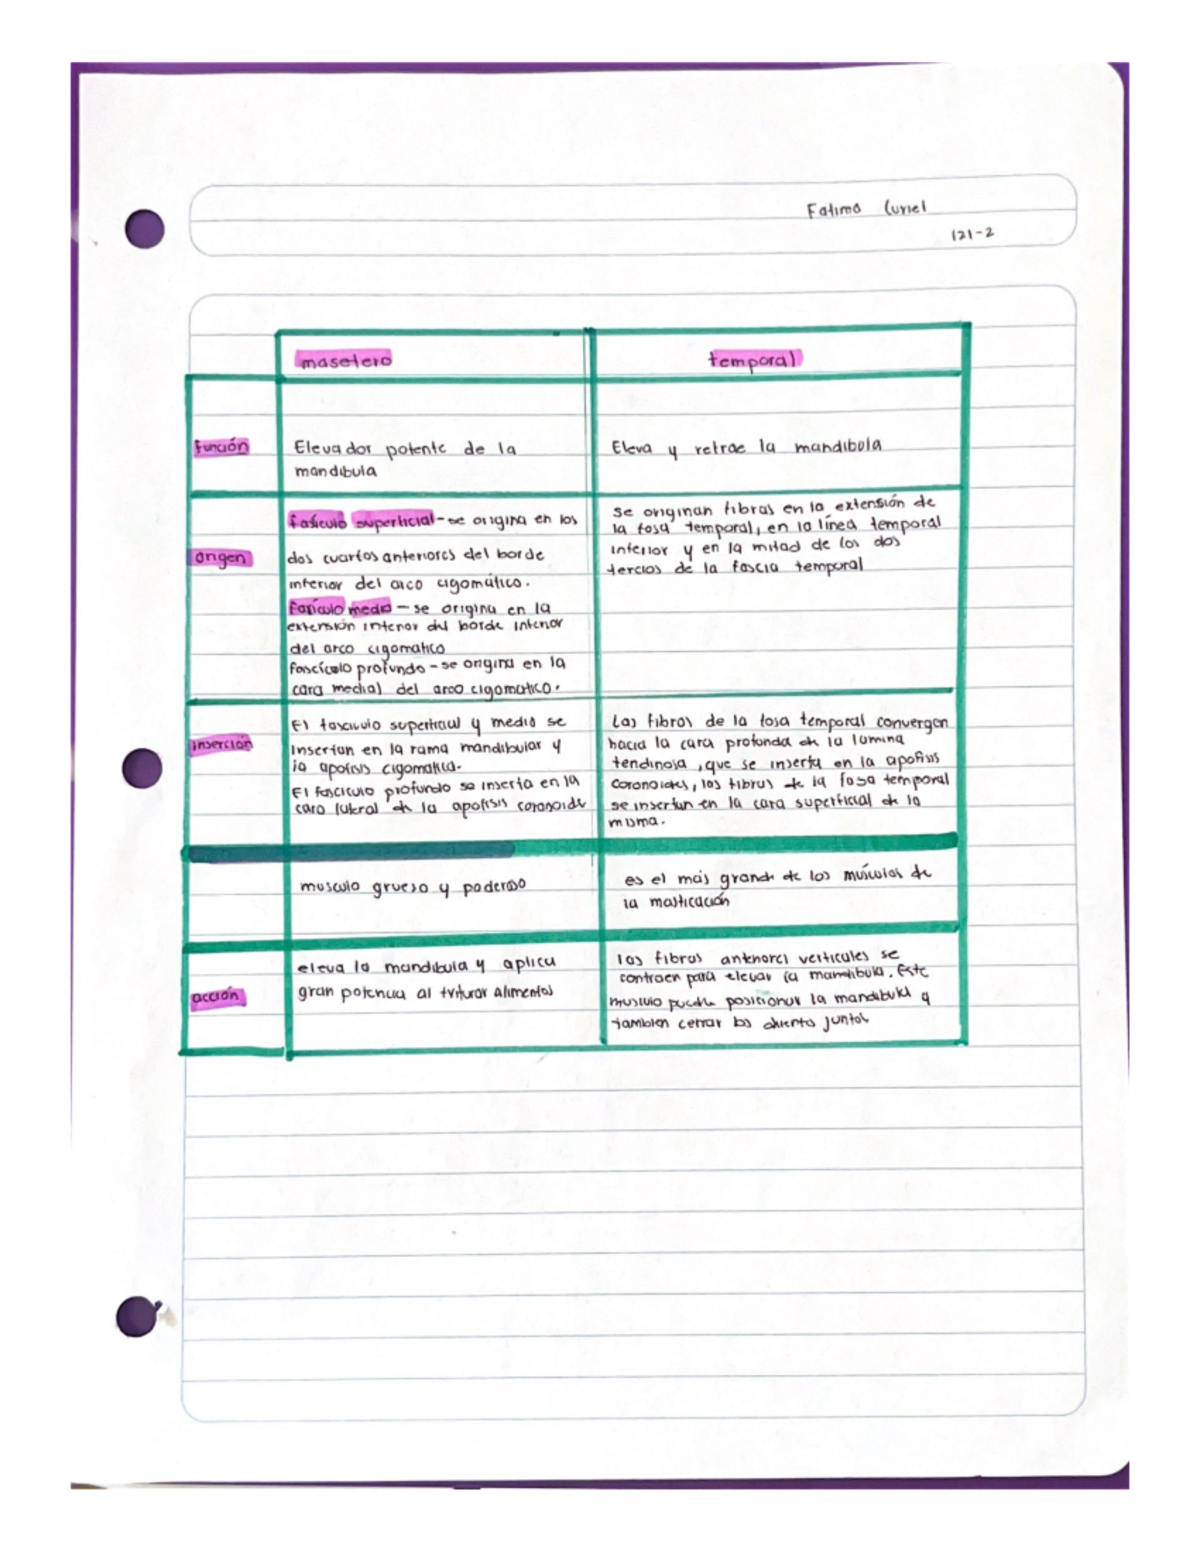 Fatima Curiel
121-2
masetero
temporal
función
Elevador potente de la
mandibula
Eleva y retrae la mandibola
origen
fasiculo superficial - se origina en los
dos cuartos anteriores del borde
inferior del arco cigomático.
fasiculo medio - se origina en la
extensión inferior del borde inferior
del arco cigomatico
fascículo profundo - se origina en la
cara medial del arco cigomatico.
se originan fibras en la extensión de
la fosa temporal, en la línea temporal
inferior y en la mitad de los dos
tercios de la fascia temporal
inserción
El fasciculo superficial y medio se
insertan en la rama mandibular y
la apofisis cigomatica.
El fasciculo profundo se inserta en la
cara lateral de la apofisis coronoide
Las fibras de la fosa temporal convergen
hacia la cara profunda de la lamina
tendinosa, que se inserta en la apofisis
coronoides, las fibras de la fosa temporal
se insertan en la cara superficial de la
misma.
musculo grueso y poderoso
es el más grande de los músculos de
la masticación
acción
eleva la mandibula y aplica
gran potencia al triturar alimentos
las fibras anteriores verticules se
contraen para elevar la mandibula. Este
musculo puede posicionar la mandibula y
tambien cerrar los dientes juntos